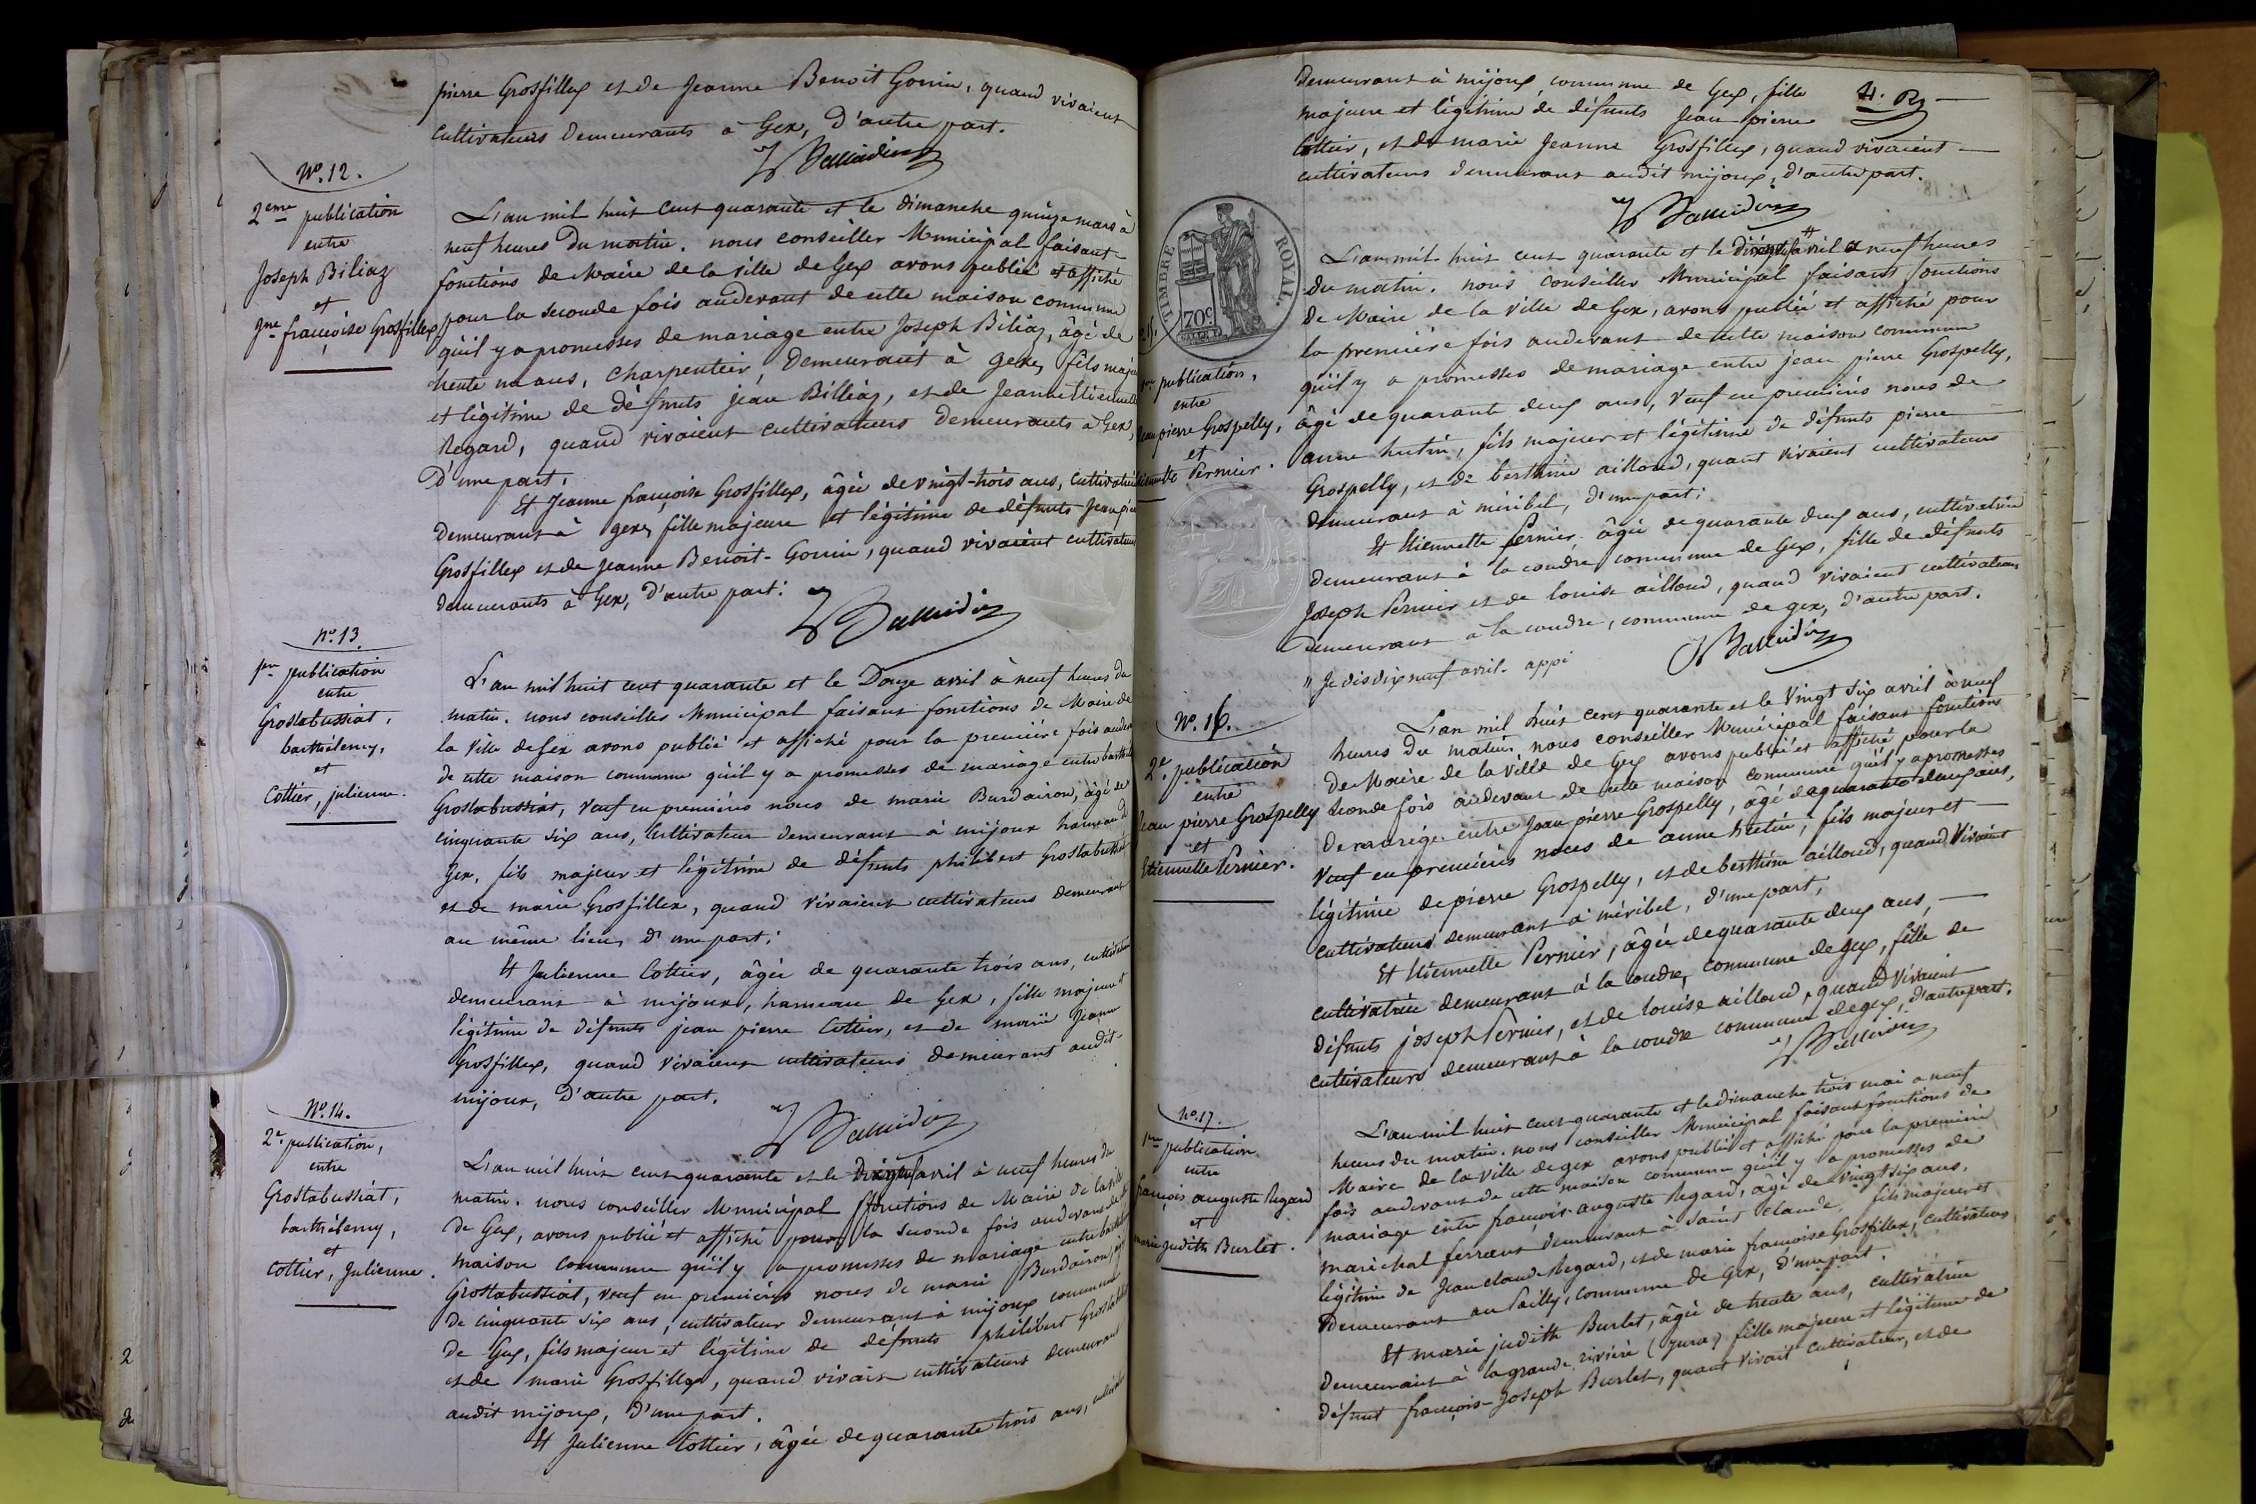 pierre Grosfillex et de Jeanne Benoit Gonin, quand vivaient
cultivateurs demeurants à Gex, d'autre part.
No. 12.
2eme publication
entre
Joseph Biliaz
et
Jne françoise Grosfillex
L'an mil huit cent quarante et le dimanche quinze mars à
neuf heures du matin. nous conseiller Municipal faisant
fonctions de Maire de la ville de Gex avons publié et affiché
pour la seconde fois audevant de cette maison commune
qu'il y a promesses de mariage entre Joseph Biliaz, âgé de
trente un ans, charpentier, demeurant à gex, fils maj
et légitime de défunts jean Billiaz, et de Jeanne Etiennette
Regard, quand vivaient cultivateurs demeurants à Gex,
D'une part,
Et Jeanne françoise Grosfillex, âgée de vingt-trois ans, cultivatrice
demeurant à gex, fille majeure et légitime de défunts Jean pie
Grosfillex et de Jeanne Benoit-Gonin, quand vivaient cultivateurs
demeurants à Gex, d'autre part.
No. 13.
1ere publication
entre
Grostabussiat,
barthélemy,
et
Cottier, julienne.
L'an mil huit cent quarante et le Douze avril à neuf heures du
matin. nous conseiller Municipal faisant fonctions de Maire de
la ville de Gex avons publié et affiché pour la première fois audev
de cette maison commune qu'il y a promesses de mariage entre barth
Grostabussiat, veuf en premières noces de marie Burdairon, âgé de
cinquante six ans, cultivateur demeurant à mijoux hameau d
Gex, fils majeur et légitime de défunts philibert Grostabussiat
et de marie Grosfillex, quand vivaient cultivateurs demeurant
au même lieu, d'une part;
Et Julienne Cottier, âgée de quarante trois ans, cultivatrice
demeurant à mijoux, hameau de Gex, fille majeure et
légitime de défunts jean pierre Cottier, et de marie Jeanne
Grosfillex, quand vivaient cultivateurs demeurant audit
mijoux, D'autre part.
No. 14.
2e. publication,
entre
Grostabussiat,
barthélemy,
et
Cottier, Julienne.
L'an mil huit cent quarante et le avril à neuf heures du
matin. nous conseiller Municipal fonctions de Maire de la ville
de Gex, avons publié et affiché pour la seconde fois audevant de
maison commune qu'il y a promesses de mariage entre barthel
Grostabussiat, veuf en premières noces de marie Burdairon, âgé
de cinquante six ans, cultivateur demeurant à mijoux commune
de Gex, fils majeur et légitime de défunts philibert Grostab
et de marie Grosfillex, quand vivait cultivateurs demeurant
audit mijoux, d'une part.
Et Julienne Cottier, âgée de quarante trois ans, cultivatrice
demeurant à mijoux, commune de Gex, fille
majeure et légitime de défunts Jean pierre
Cottier, et de marie Jeanne Grosfillex, quand vivaient
cultivateurs demeurant audit mijoux, d'autre part.
TIMBRE ROYAL
70c
publication,
entre
Jean pierre Grospelly,
et
Etiennette Pernier.
L'an mil huit cent quarante et le avril à neuf heures
du matin. nous conseiller Municipal faisant fonctions
de Maire de la ville de Gex, avons publié et affiché pour
la première fois audevant de cette maison commune
qu'il y a promesses de mariage entre jean pierre Grospelly,
âgé de quarante deux ans, veuf en premières noces de
anne hutin, fils majeur et légitime de défunts pierre
Grospelly, et de berthine ailloud, quant vivaient cultivateurs
demeurant à miribel, d'une part;
Et Etiennette Pernier âgée de quarante deux ans, cultivatrice
demeurant à la coudre, commune de Gex, fille de défunts
Joseph Pernier et de louise ailloud, quand vivaient cultivateurs
demeurant à la coudre, commune de gex, d'autre part.
" Je dis dix neuf avril. app
No. 16.
2e. publication
entre
Jean pierre Grospelly
et
Etiennette Pernier.
L'an mil huit cent quarante et le vingt six avril à neuf
heures du matin nous conseiller Municipal faisant fonctions
de Maire de la ville de Gex avons publié et affiché pour la
seconde fois audevant de cette maison commune qu'il y a promesses
de mariage entre Jean pierre Grospelly, âgé de quarante deux ans,
veuf en premières noces de anne hutin, fils majeur et
légitime de pierre Grospelly, et de berthine ailloud, quand vivaient
cultivateurs demeurant à miribel, d'une part,
Et Etiennette Pernier, âgée de quarante deux ans,
cultivatrice demeurant à la coudre, commune de gex, fille de
défunts joseph Pernier, et de louise ailloud, quand vivaient
cultivateurs demeurant à la coudre commune de gex, d'autre part.
No. 17.
1ere publication
entre
françois auguste Regard
et
marie judith Burlet.
L'an mil huit cent quarante et le dimanche trois mai a neuf
heures du matin. nous conseiller Municipal faisant fonctions de
Maire de la ville de gex avons publié et affiché pour la première
fois audevant de cette maison commune qu'il y a promesses de
mariage entre françois auguste Regard, âgé de vingt six ans,
maréchal ferrant demeurant à saint claude, fils majeur et
légitime de Jean claude Regard, et de marie françoise Grosfillex, cultivateurs
demeurant au Pailly, commune de Gex, d'une part.
Et marie judith Burlet, âgée de trente ans, cultivatrice
demeurant à la grande rivière (Jura) fille majeure et légitime de
défunt françois-Joseph Burlet, quant vivait cultivateur, et de